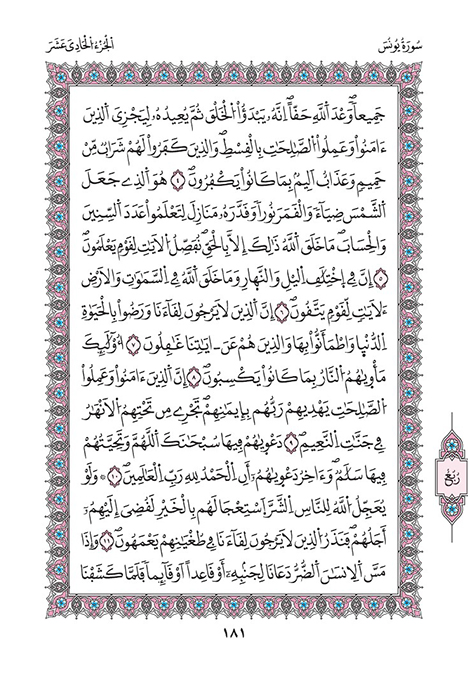 سُورَةُ يُونُسَ
اَلْجُزْءُ الْحَادِي عَشَرَ
جَمِيعاٗۖ وَعْدَ اَللَّهِ حَقّاًۖ اِنَّهُۥ يَبْدَؤُاْ اُلْخَلْقَ ثُمَّ يُعِيدُهُۥ لِيَجْزِيَ اَلذِينَ
ءَامَنُواْ وَعَمِلُواْ اُلصَّٰلِحَٰتِ بِالْقِسْطِۖ وَالذِينَ كَفَرُواْ لَهُمْ شَرَابٞ مِّنْ
حَمِيمٖ وَعَذَابٌ اَلِيمُۢ بِمَا كَانُواْ يَكْفُرُونَۖ ٤ هُوَ اَلذِے جَعَلَ
اَلشَّمْسَ ضِيَآءٗ وَالْقَمَرَ نُوراٗ وَقَدَّرَهُۥ مَنَازِلَ لِتَعْلَمُواْ عَدَدَ اَلسِّنِينَ
وَالْحِسَابَۖ مَا خَلَقَ اَللَّهُ ذَٰلِكَ إِلَّا بِالْحَقِّۖ نُفَصِّلُ اُلْأٓيَٰتِ لِقَوْمٖ يَعْلَمُونَۖ
٥ إِنَّ فِے اِخْتِلَٰفِ اِليْلِ وَالنَّهَارِ وَمَا خَلَقَ اَللَّهُ فِے اِلسَّمَٰوَٰتِ وَالْأَرْضِ
لَأٓيَٰتٖ لِّقَوْمٖ يَتَّقُونَۖ ٦ إِنَّ اَلذِينَ لَا يَرْجُونَ لِقَآءَنَا وَرَضُواْ بِالْحَيَوٰةِ
اِلدُّنْيَا وَاطْمَأَنُّواْ بِهَا وَالذِينَ هُمْ عَنَ اٰيَٰتِنَا غَٰفِلُونَ ٧ أُوْلَٰٓئِكَ
مَأْوَيٰهُمُ اُلنَّارُ بِمَا كَانُواْ يَكْسِبُونَۖ ٨ إِنَّ اَلذِينَ ءَامَنُواْ وَعَمِلُواْ
اُلصَّٰلِحَٰتِ يَهْدِيهِمْ رَبُّهُم بِإِيمَٰنِهِمْۖ تَجْرِے مِن تَحْتِهِمُ اُلْأَنْهَٰرُ
فِے جَنَّٰتِ اِلنَّعِيمِۖ ٩ دَعْوَيٰهُمْ فِيهَا سُبْحَٰنَكَ اَللَّهُمَّ وَتَحِيَّتُهُمْ
فِيهَا سَلَٰمٞۖ وَءَاخِرُ دَعْوَيٰهُمُۥٓ أَنِ اِلْحَمْدُ لِلهِ رَبِّ اِلْعَٰلَمِينَۖ ١٠ وَلَوْ
يُعَجِّلُ اُللَّهُ لِلنَّاسِ اِلشَّرَّ اَسْتِعْجَالَهُم بِالْخَيْرِ لَقُضِيَ إِلَيْهِمُۥٓ
أَجَلُهُمْۖ فَنَذَرُ اُلذِينَ لَا يَرْجُونَ لِقَآءَنَا فِے طُغْيَٰنِهِمْ يَعْمَهُونَۖ ١١ وَإِذَا
مَسَّ اَلْإِنسَٰنَ اَلضُّرُّ دَعَانَا لِجَنۢبِهِۦٓ أَوْ قَاعِداً اَوْ قَآئِماٗ فَلَمَّا كَشَفْنَا
رُبُعْ
١٨١